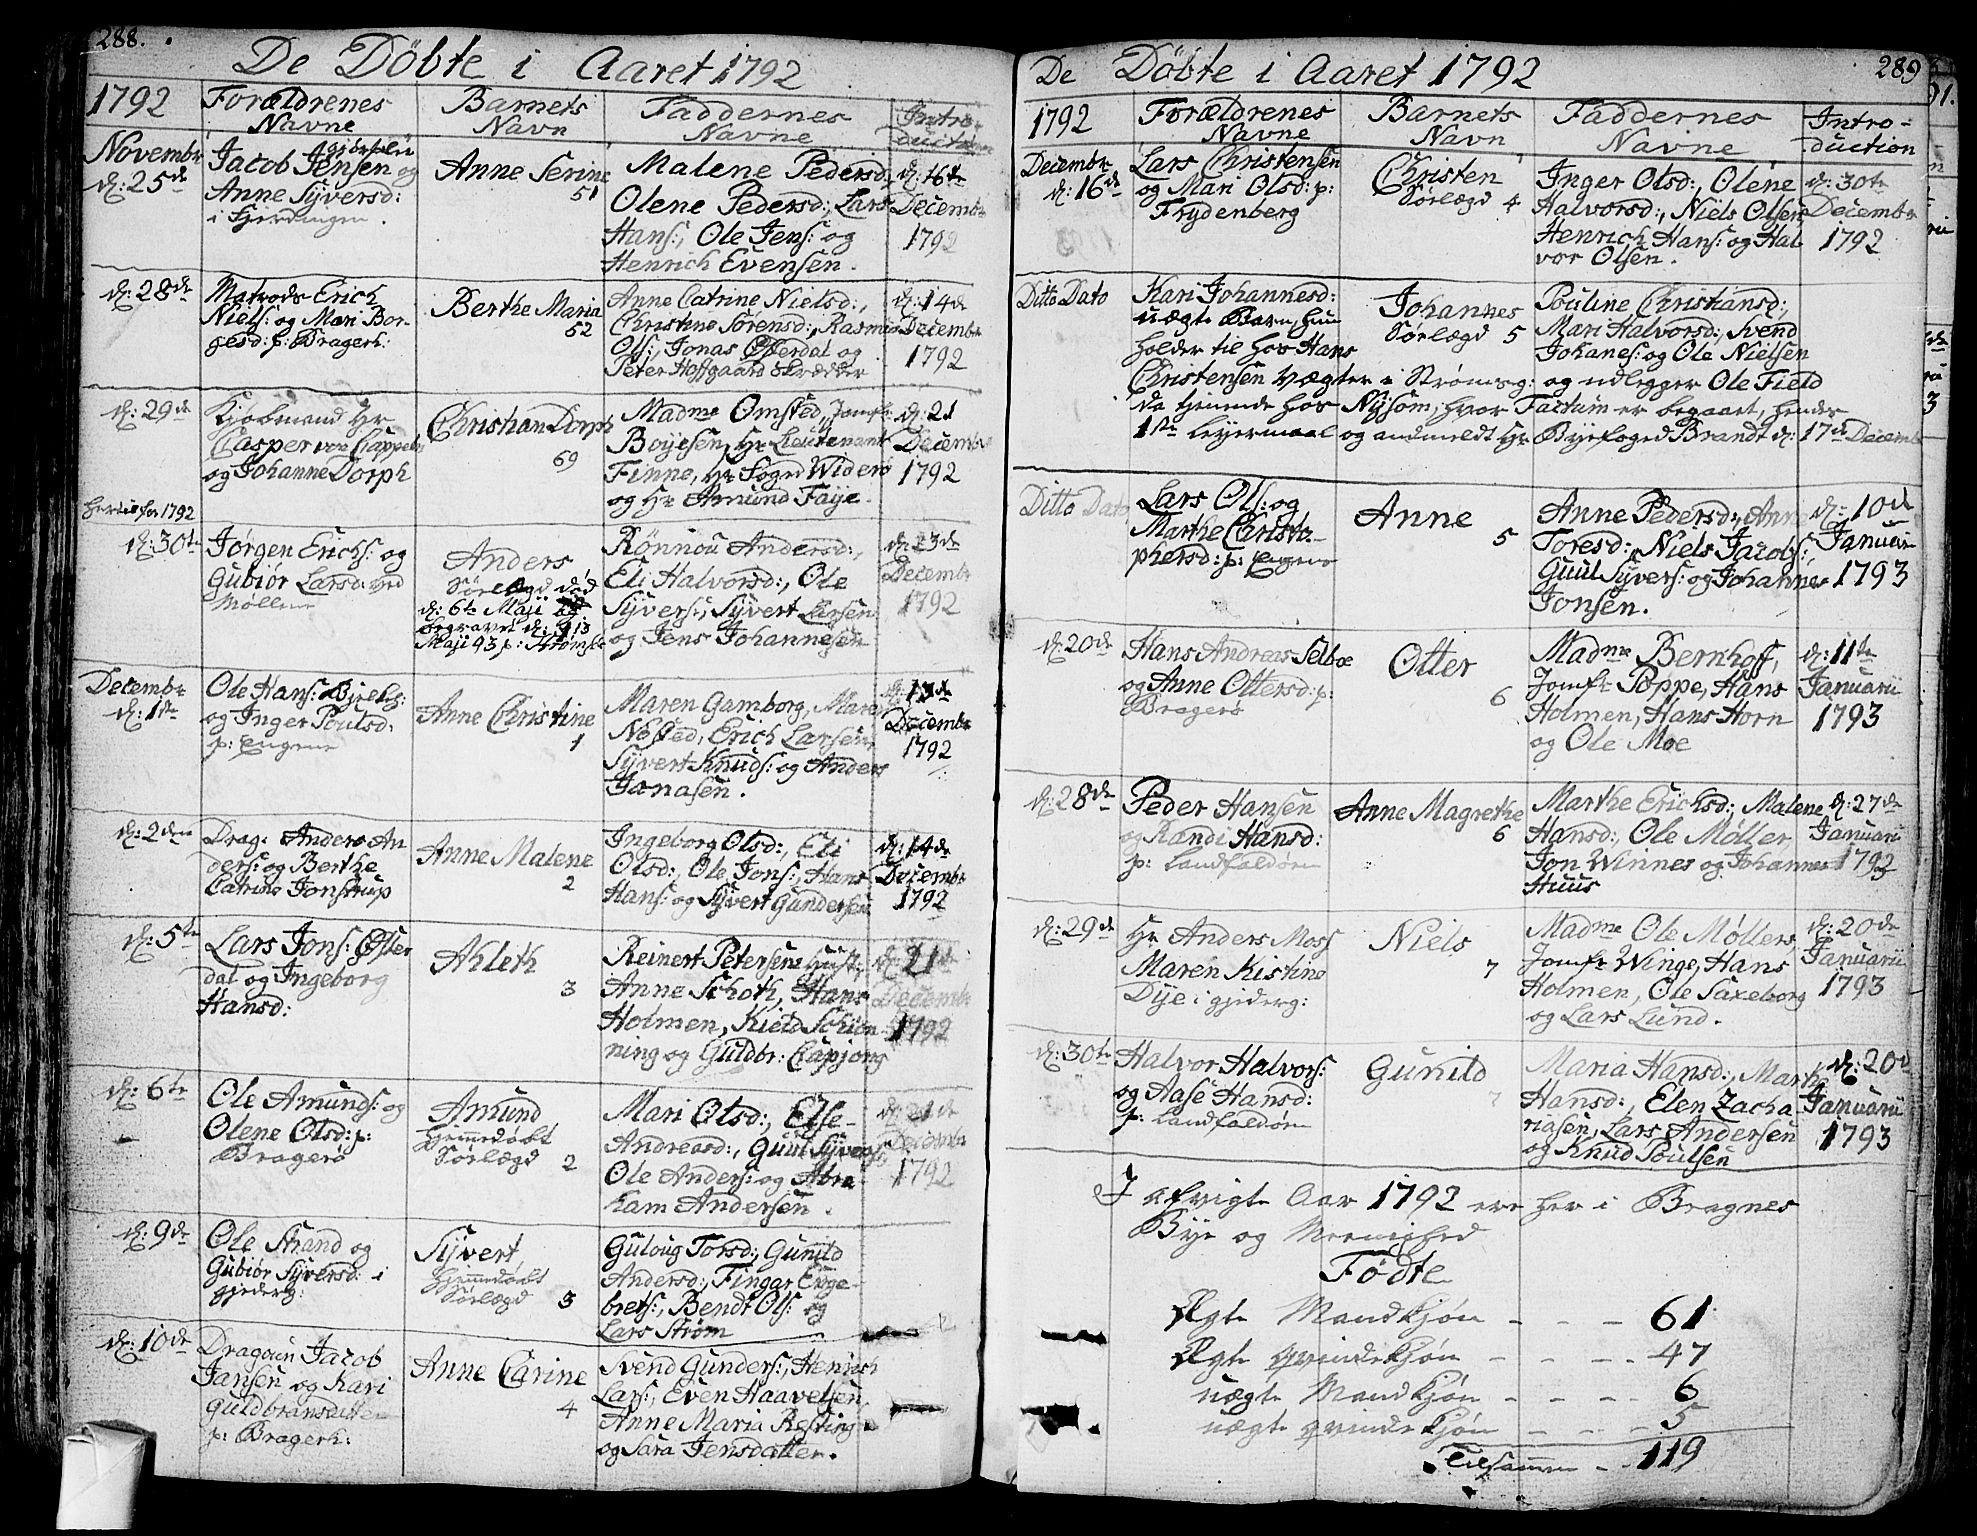 288.
De Döbte i Aaret 1792
1792 Forældrenes Navne
Barnets Navn
Faddernes Navne
Intro-
duction
Novembr
d: 25de
Jacob Jensen og
Anne Syversd:
i Fjerdingen.
Anne Serine
51
Malene Pedersd:,
Olene Pedersd:, Lars
Hans:, Ole Jens: og
Henrich Evensen.
d: 16de
Decembr
1792
d: 28de
Matrods Erich
Niels: og Mari Bor-
gesd: p: Bragerh:
Berthe Maria
52
Anne Catrine Nielsd:,
Christine Sörensd:, Rasmus
Ols:, Jonas Österdal og
Peter Hoffgaard Skrædder
d: 14de
Decembr
1792
d: 29de
Kjöbmand Hr
Casper von Cappelen
og Johanne Dorph
Christian Dorph
69
Madme Omsted, Jomfr:
Boyesen, Hr Lieutenant
Finne, Hr Fogd Widerö
og Hr Amund Faye.
d: 21
Decembr
1792
d: 30te
Jörgen Erichs: og
Gubiör Larsd: ved
Möllene
Anders
Sörlægd död
d: 6te Maji
begravet d: 13
Maji 93 p: Strömsöe
Rönnou Andersd:,
Eli Halvorsd:, Ole
Syvers:, Syvert Larsen
og Jens Johannesen
d: 23de
Decembr
1792
Decembr
d: 1de
Ole Hans:
og Inger Poulsd:
p: Engene
Anne Christine
1
Maren Gamborg, Maren
Næsted, Erich Larsen,
Syvert Knuds: og Anders
Jonasen.
d: 13de
Decembr
1792
d: 2den
Drag: Anders An
ders: og Berthe
Catrine Jonstrup
Anne Malene
2
Ingeborg Olsd:, Eli
Olsd:, Ole Jons:, Hans
Hans: og Syvert Gundersen
d: 14de
Decembr
1792
d: 5te
Lars Jons: Öster
dal og Ingeborg
Hansd:
Ahleth
3
Reinert Petersens Hust:,
Anne Schoth, Hans
Holmen, Kield Schiön-
ning og Guldbr: Capjong
d: 21de
Decembr
1792
d: 6te
Ole Amunds: og
Olene Olsd: p:
Bragerö
Amund
Hjemmedöbt
Sörlægd 2
Mari Olsd:, Else
Andreasd:, Guul Syvers:,
Ole Anders: og Abra-
ham Andersen.
d: 21de
Decembr
1792
d: 9de
Ole Strand og
Gubiör Syversd: i
gjederg:
Syvert
Hjemmedöbt
Sörlægd 3
Guloug Torsd:, Gunild
Andersd:, Fingar Enge-
brets:, Bendt Ols: og
Lars Ström
d: 10de
Dragoun Jacob
Jansen og Kari
Guldbransdatter
p: Bragerh:
Anne Carine
4
Svend Gunders:, Henrich
Lars:, Even Haavelsen,
Anne Maria
og Sara Jensdatter.
289
De Döbte i Aaret 1792
1792 Forældrenes Navne
Barnets Navn
Faddernes Navne
Intro-
duction
Decembr
d: 16de
Lars Christensen
og Mari Olsd: p:
Frydenberg
Christen
Sörlægd 4
Inger Olsd:, Olene
Halvorsd:, Niels Olsen,
Henrich Hans: og Hal
vor Olsen.
d: 30te
Decembr
1792
Ditto Dato
Kari Johannesd:
uægte Barn, hun
holder til hos Hans
Johannes
Sörlægd 5
Pouline Christiansd:,
Mari Halvorsd:, Svend
Johanes: og Ole Nielsen
Christensen Vægter i Strömsø: og udlegger Ole Field
da tjenende hos Nysom, hvor Factum er begaaet, hendes
1ste Leyermaal og andmeldt Hr Byefoged Brandt d: 17de Decembr
Ditto Dato
Lars Ols: og
Marthe Christo-
phersd: p: Engene
Anne
5
Anne Pedersd:, Anne
Toresd:, Niels Jacobs:,
Guul Syvers: og Johannes
Jonsen.
d: 10de
Januarii
1793
d: 20de
Hans Andreas Selboe
og Anne Ottersd: p:
Bragerö
Otter
6
Madme Bernhoff,
Jomfr Poppe, Hans
Holmen, Hans Horn
og Ole Moe
d: 11te
Januarii
1793
d: 28de
Peder Hansen
og Randi Hansd:
p: Landfaldöen
Anne Magrethe
6
Marthe Erichsd:, Malene
Hansd:, Ole Möller,
Jon Winnes og Johannes
Huus
d: 27de
Januarii
1793
d: 29de
Hr Anders Moss
Maren Kistine
Dye i gjederg:
Niels
7
Madme Ole Möllers,
Jomfr Winge, Hans
Holmen, Ole Saxeborg
og Lars Lund.
d: 20de
Januarii
1793
d: 30te
Halvor Halvors:
og Aase Hansd:
p: Landfaldöen
Gunild
7
Maria Hansd:, Marthe
Hansd:, Elen Zacha
riasen, Lars Andersen
og Knud Poulsen
d: 20de
Januarii
1793
I afvigte Aar 1792 ere her i Bragnes
Bye og Meenighed
Födte
Ægte Mandkjön - - - 61
Ægte qvindekjön - - - 47
uægte Mandkjön - - - 6
uægte qvindekjön - - - 5
Tilsammen - - 119